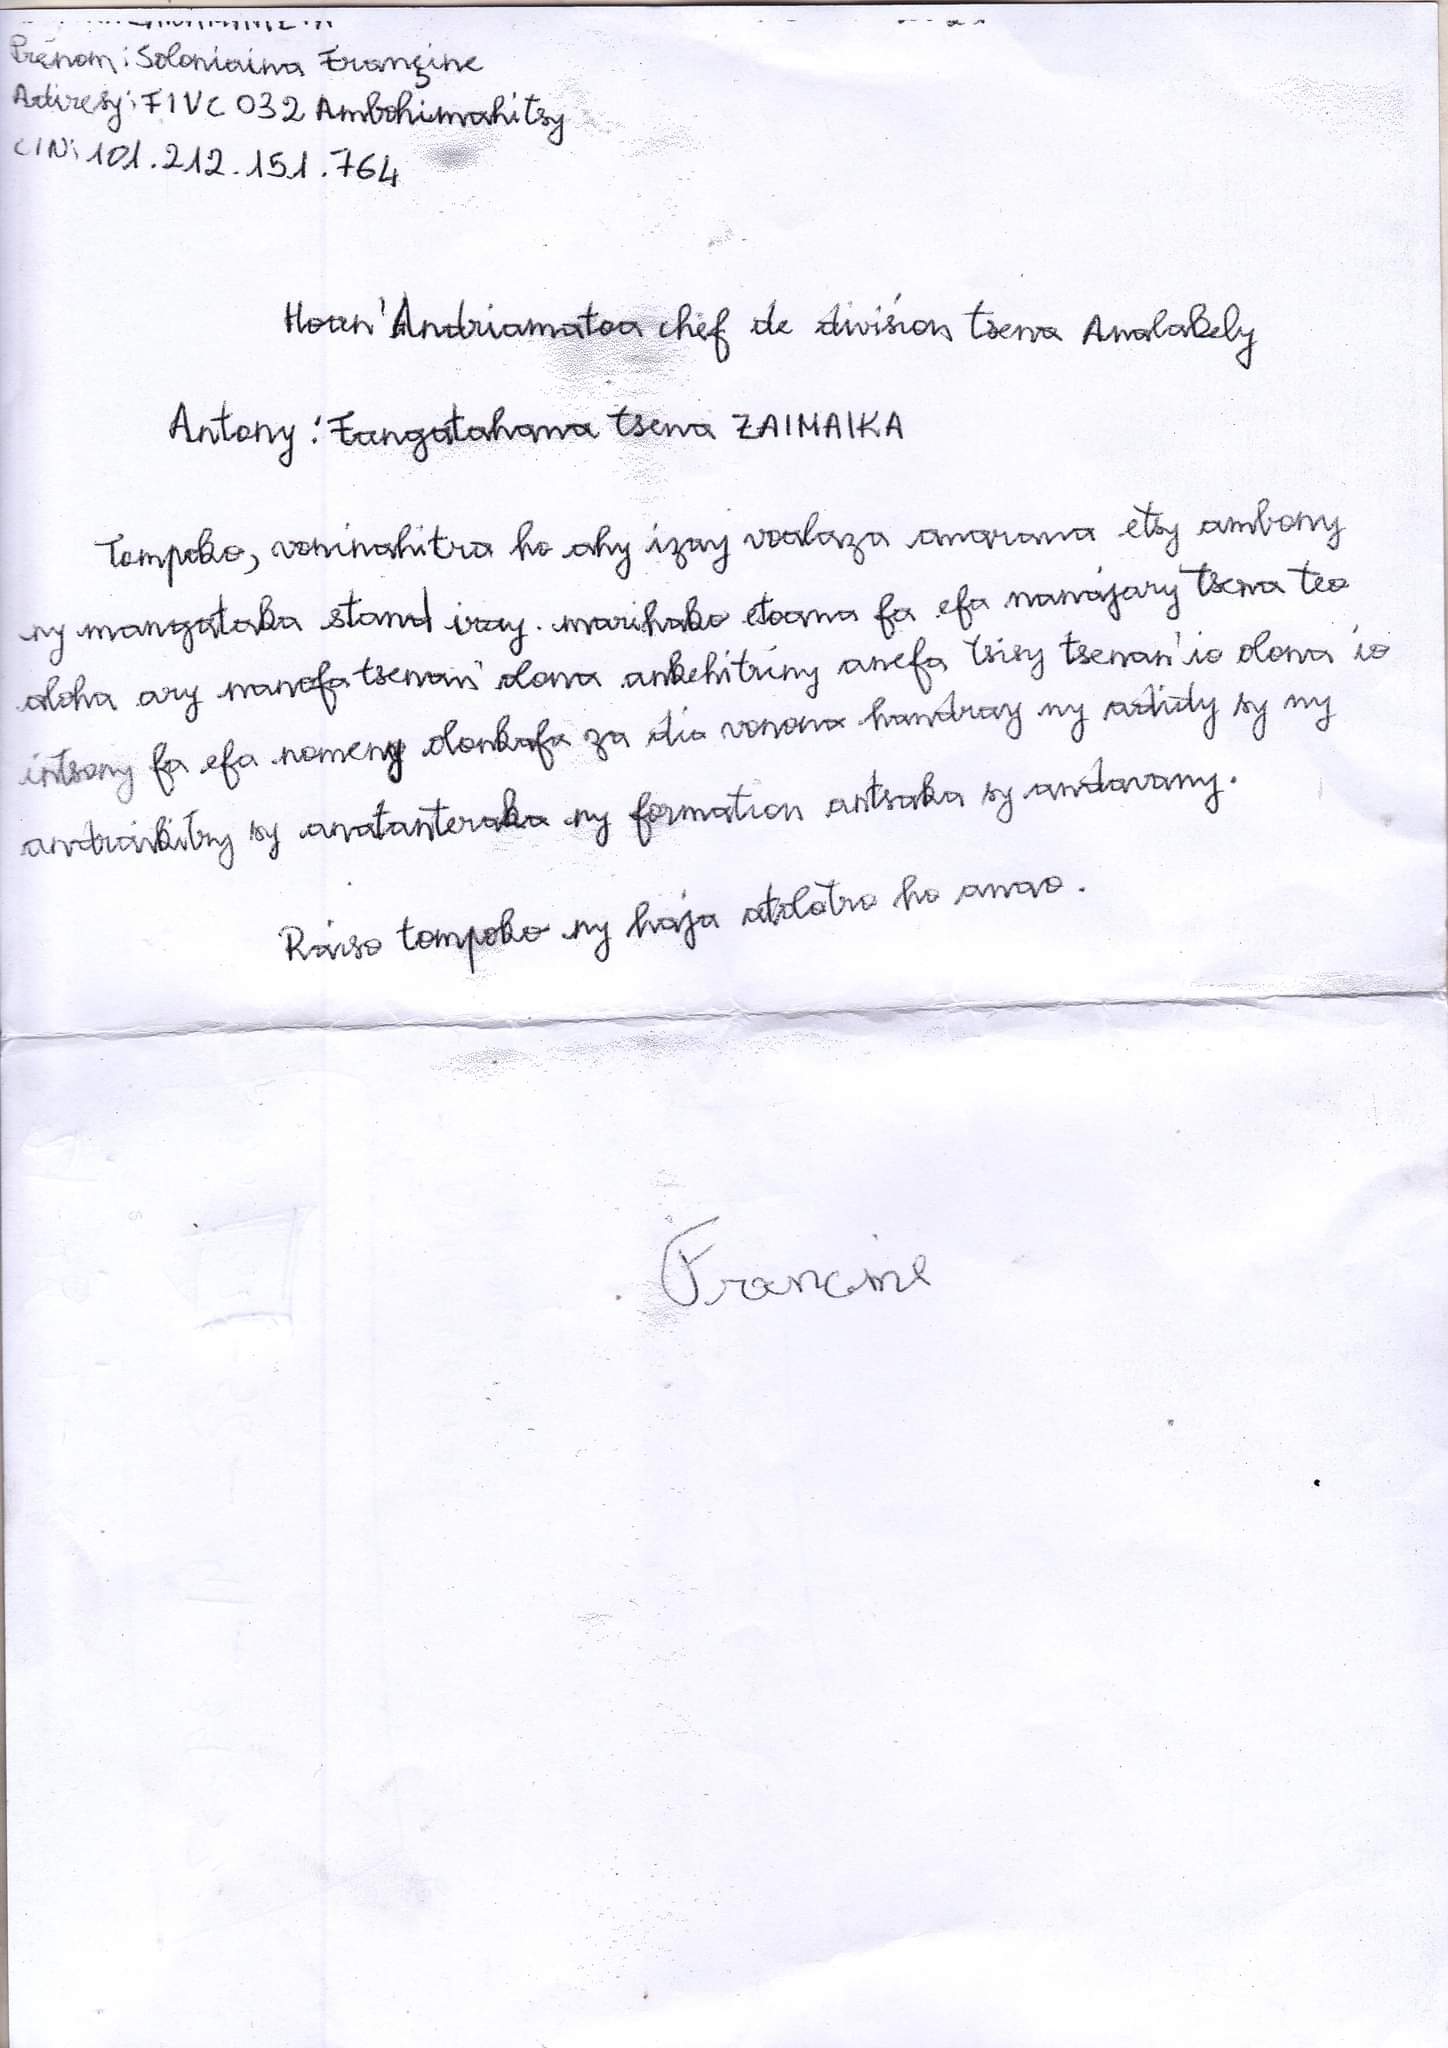 Prénom: Soloniaina Francine
Adiresy: FIVC 032 Ambohimahitsy
CIN: 101.212.151.764
Hoan'Andriamatoa chef de division tsena Analakely
Antony: Fangatahana tsena ZAIMAIKA
Tompoko, voninahitra ho ahy izay voalaza anarana etsy ambony
ny mangataka stand iray. marihako etoana fa efa nanajary tsena teo
aloha ary manofa tsenan' olona ankehitriny anefa tsisy tsenan'io olona io
intsony fa efa nomeny olonkafa za dia vonona handray ny adidy sy ny
andraikitry sy anatanteraka ny formation antsaka sy andavany.
Raiso tompoko ny haja atolotro ho anao.
Francine